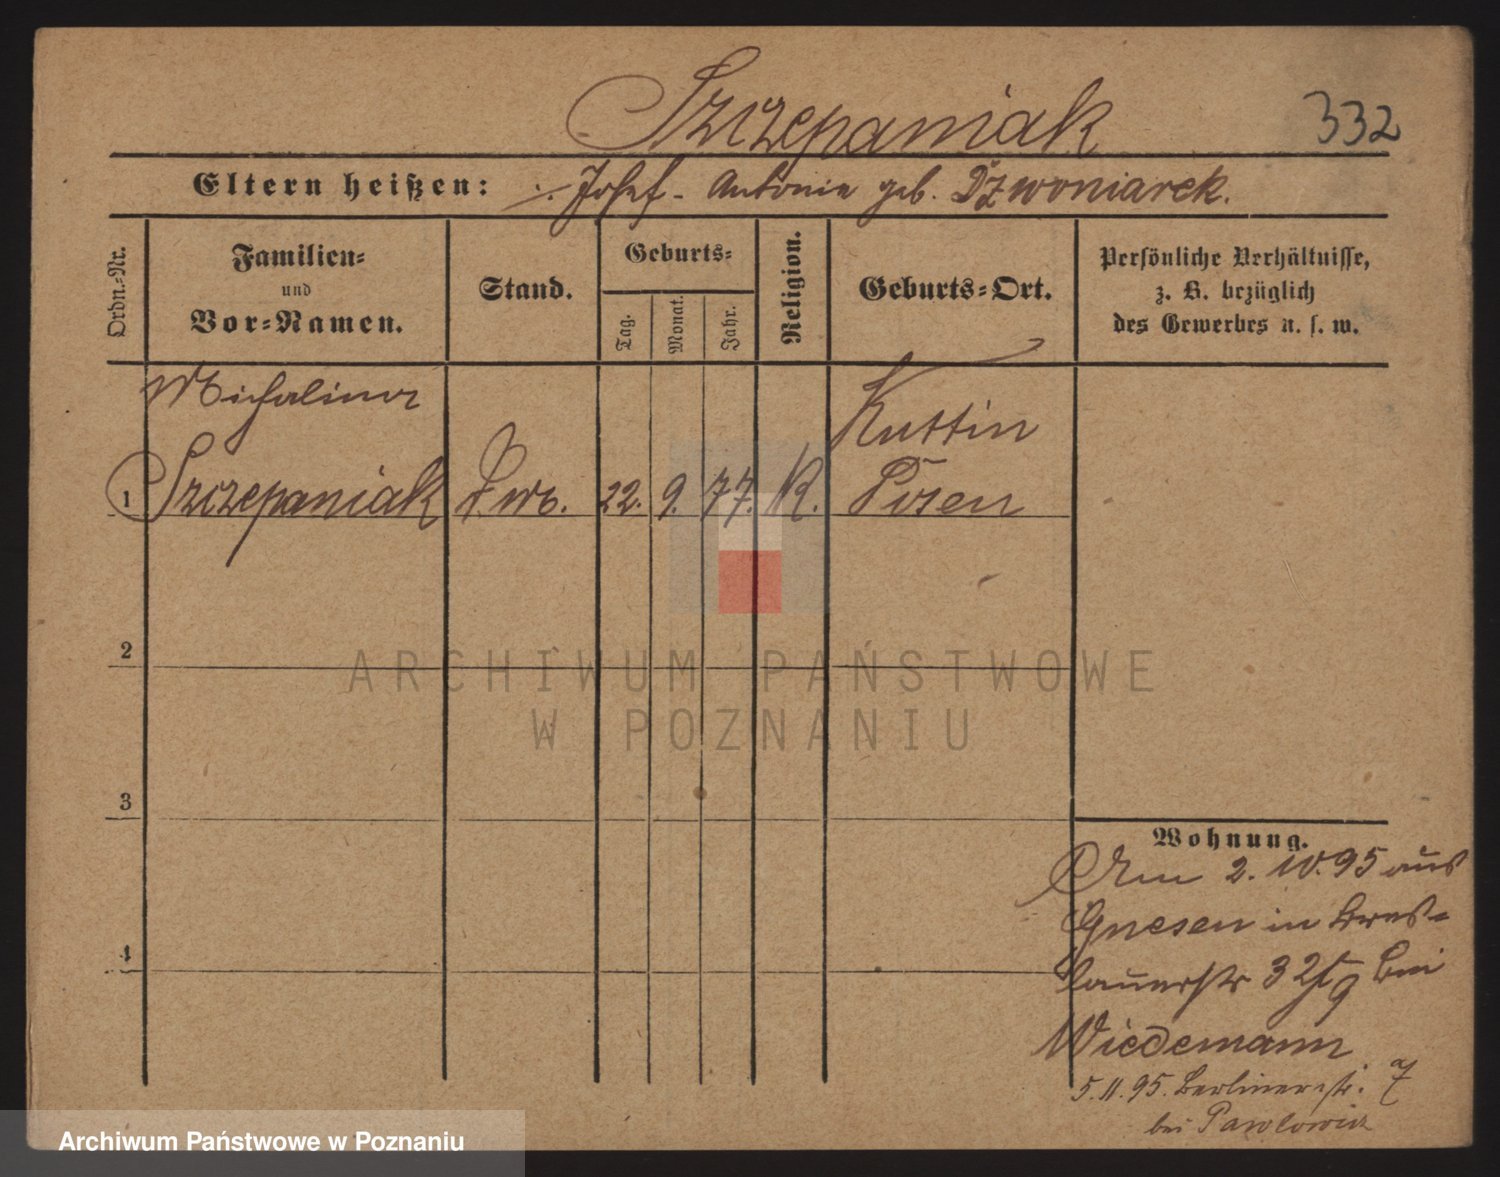 Szczepaniak
332
Eltern heißen: Josef - Antonie geb. Dzwoniarek.
Ordn.-Nr.
Familien-
und
Vor-Namen.
Stand.
Geburts-
Tag.
Monat.
Jahr.
Religion.
Geburts-Ort.
Persönliche Verhältnisse,
z. B. bezüglich
des Gewerbes u. s. w.
Michalina
Kuttin
1 Szczepaniak 22. 9. 77. K. Posen
2
ARCHIWUM PAŃSTWOWE
W POZNANIU
3
Wohnung.
Am 2. 10. 95 aus
Gnesen in Bres-
4
lauerstr 32 bei
Wiedemann
5.11.95. Berlinerstr. 7
bei Pawlowicz
Archiwum Państwowe w Poznaniu